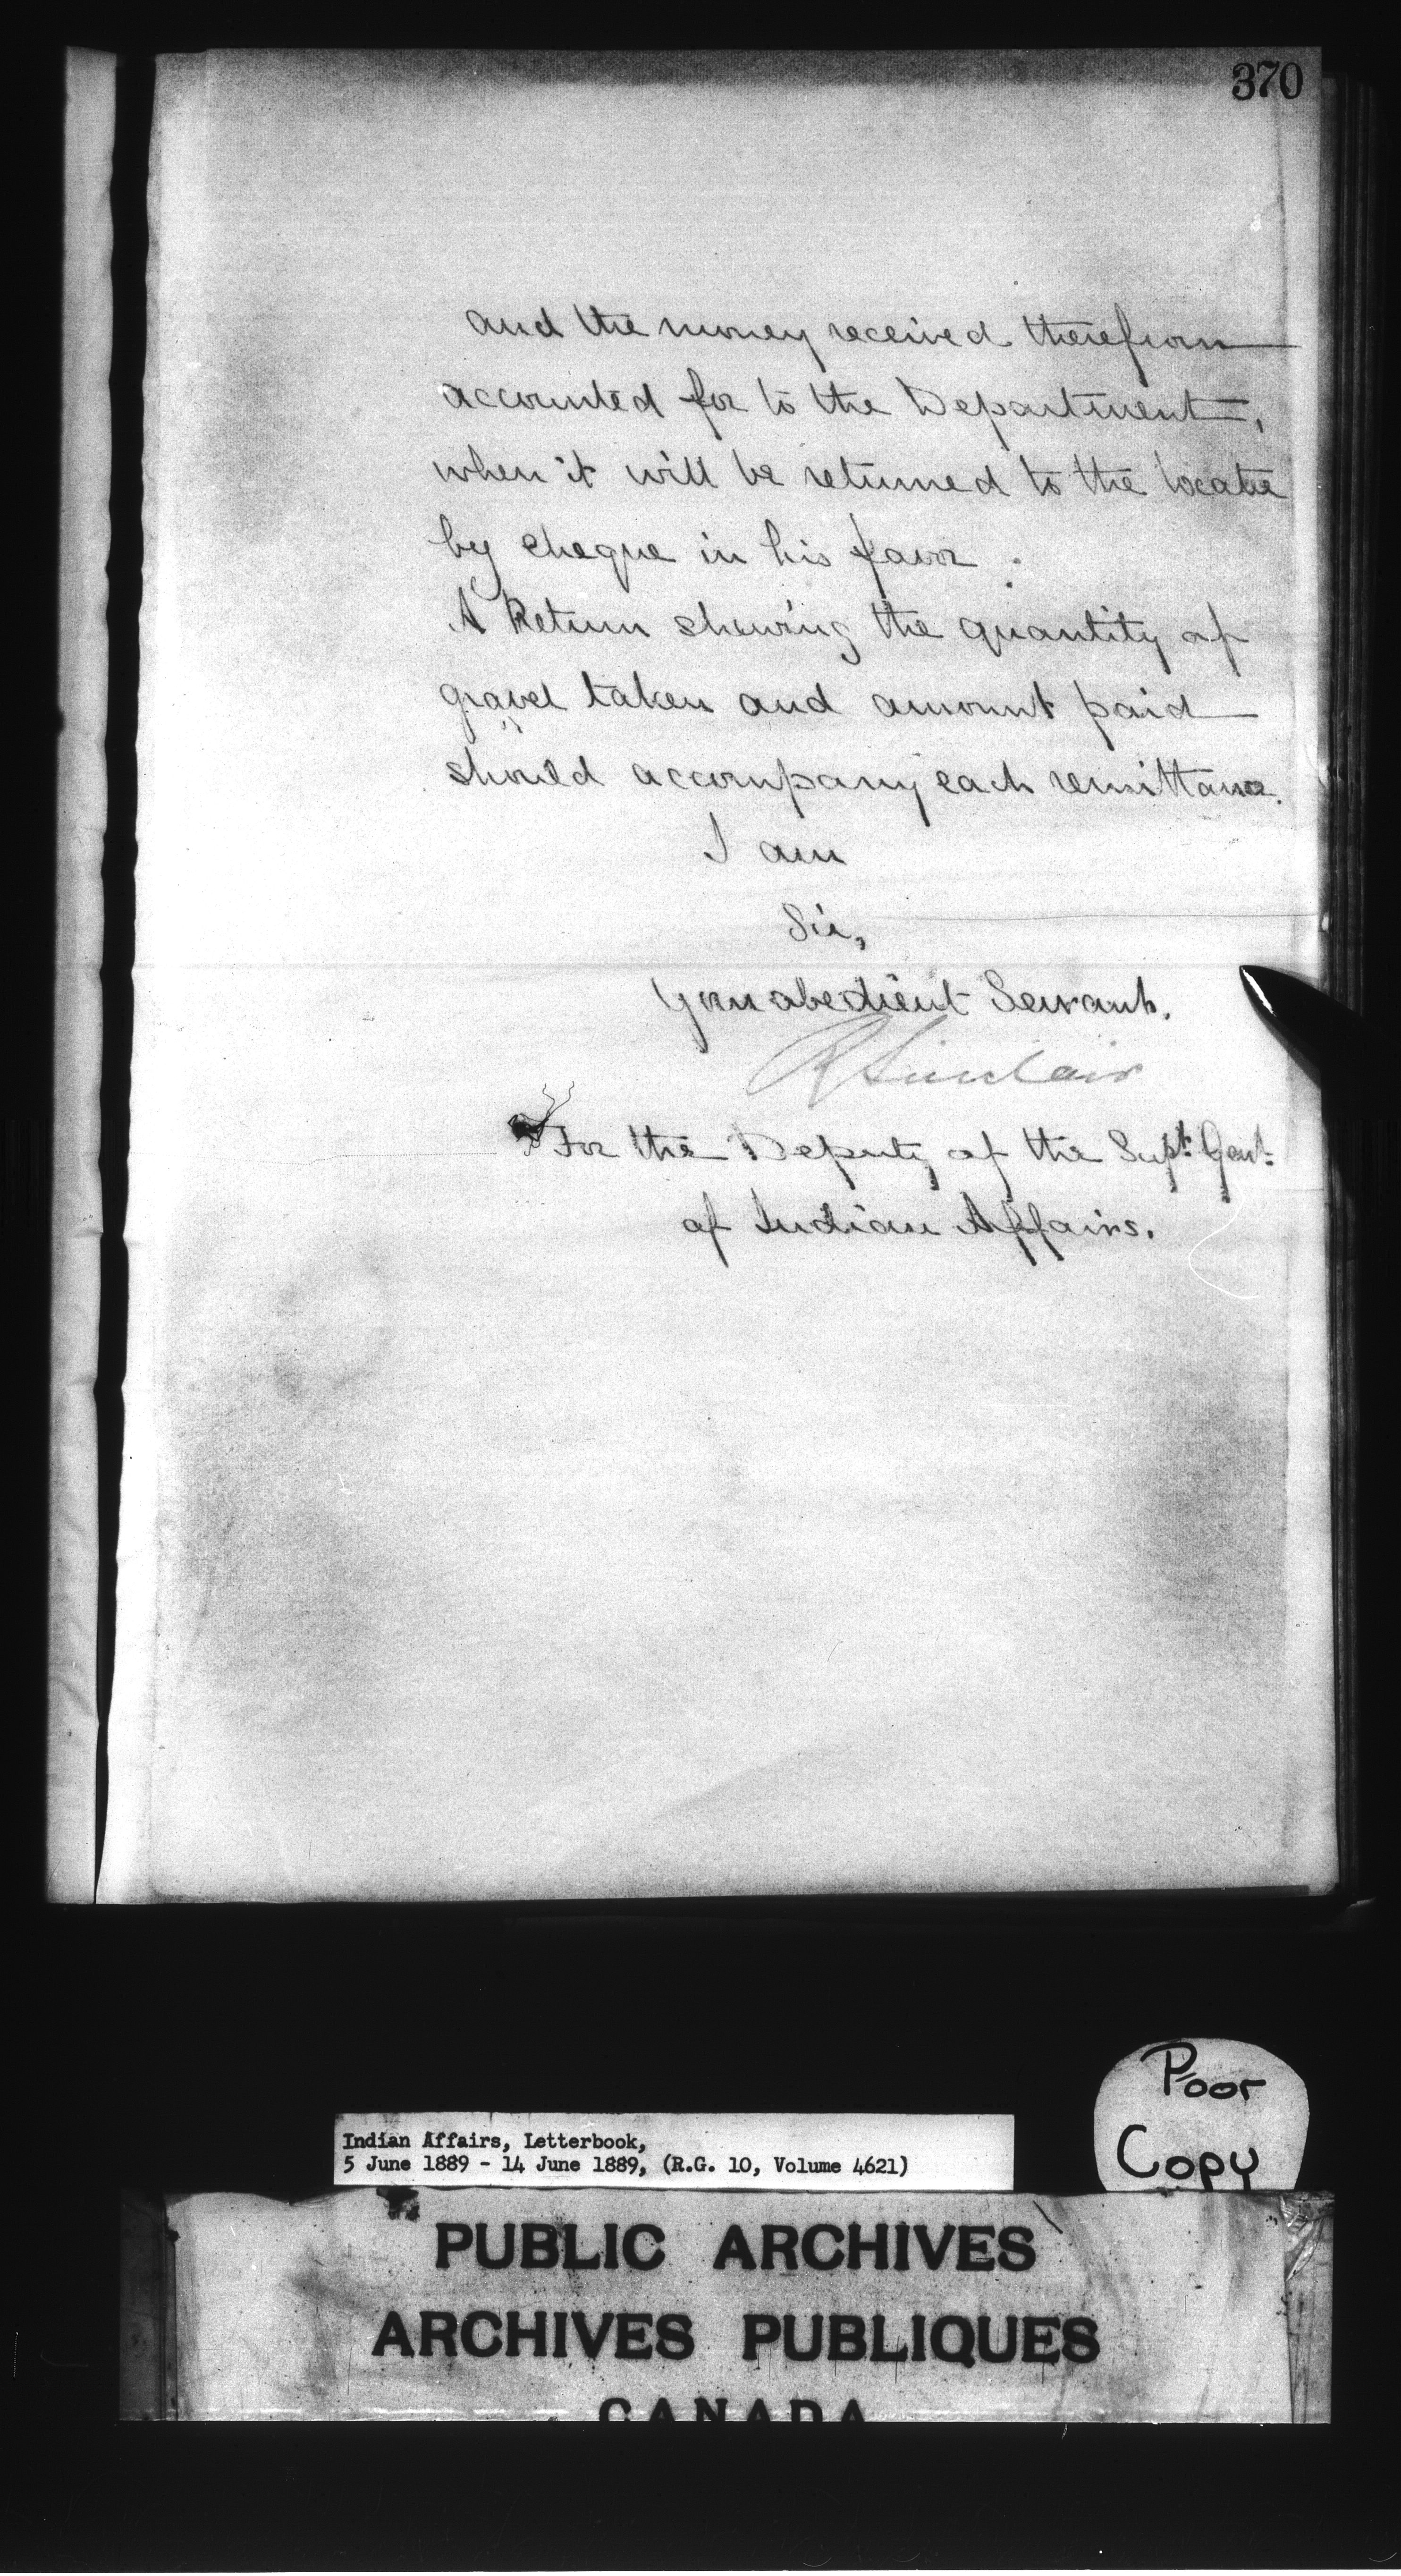 370
and the money received therefrom
accounted for to the Department,
when it will be returned to the locatee
by cheque in his favor.
A Return shewing the quantity of
gravel taken and amount paid
should accompany each remittance.
I am
Sir,
Your obedient Servant.
R Sinclair
For the Deputy of the Supt. Genl.
of Indian Affairs.
Poor
Copy
Indian Affairs, Letterbook,
5 June 1889 - 14 June 1889, (R.G. 10, Volume 4621)
PUBLIC ARCHIVES
ARCHIVES PUBLIQUES
CANADA